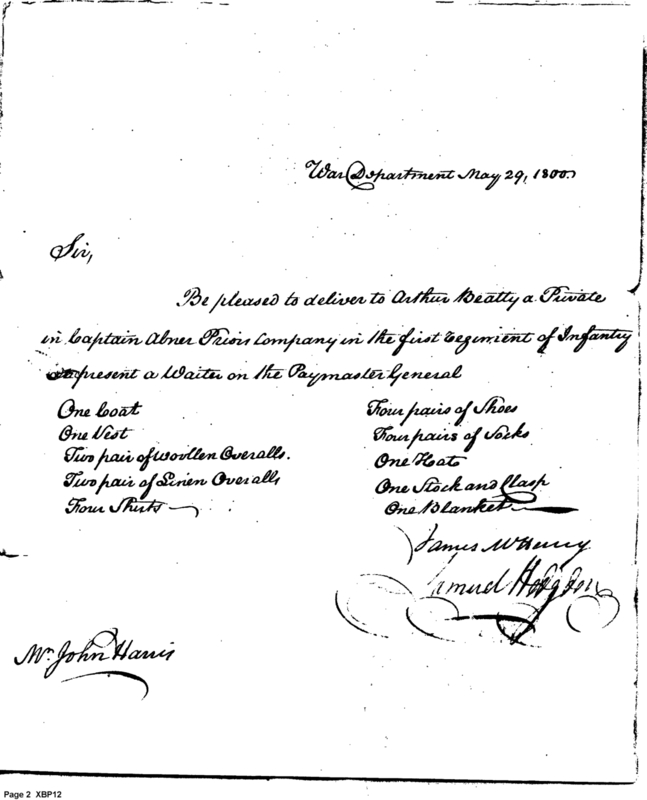 War Department May 29, 1800
Sir,
Be pleased to deliver to Arthur Beatty a Private
in Captain Abner Priors Company in the first Regiment of Infantry
at present a Waiter on the Paymaster General
One Coat
One Vest
Two pair of Woollen Overalls.
Two pair of Linen Overalls
Four Shirts
Four pairs of Shoes
Four pairs of Socks
One Hat
One Stock and Clasp
One Blanket
James McHenry
Samuel Hodgdon
Mr. John Harris
Page 2 XBP12